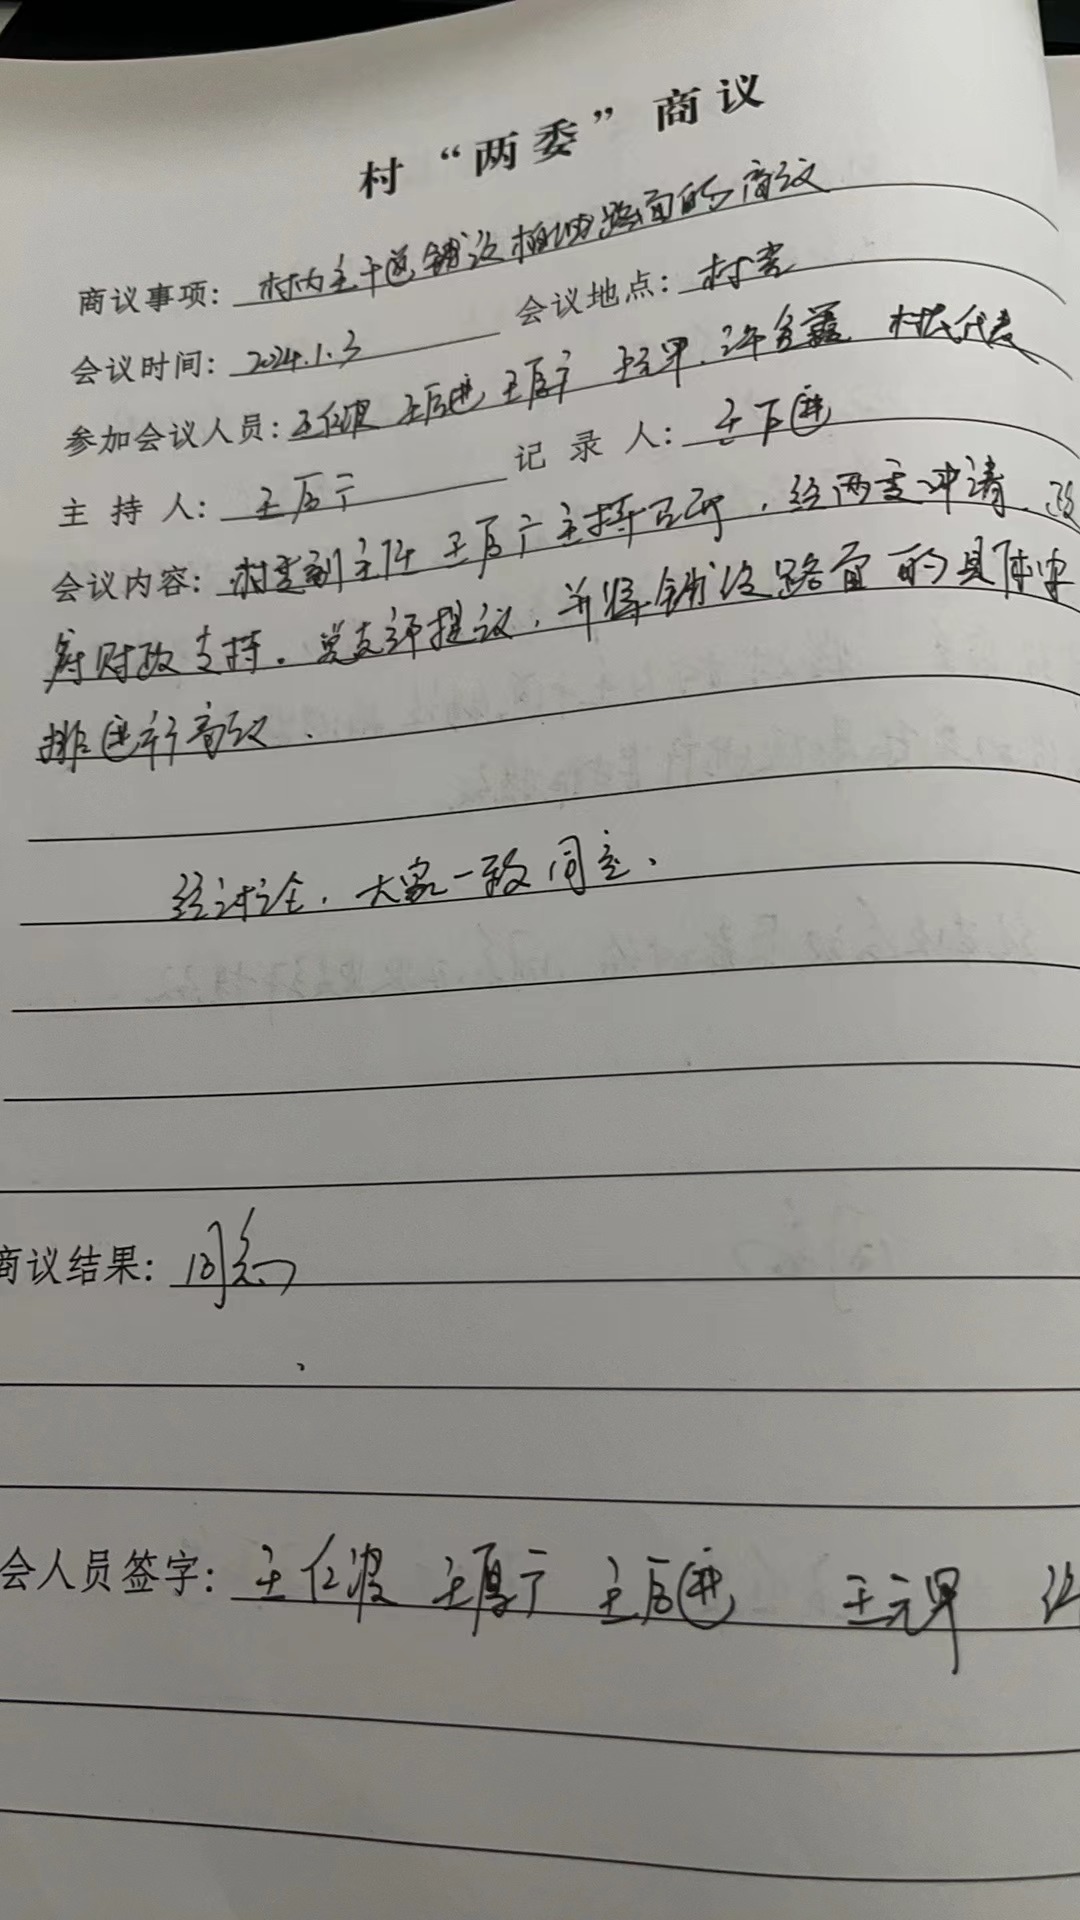 村“两委”商议
商议事项：村内主干道铺设柏油路面的商议
会议时间：2024.1.3 会议地点：村委
参加会议人员：王仁波 王厚进 王厚广 王元甲 许 村民代表
主持人：王厚广 记录人：王厚进
会议内容：村委副主任王厚广主持召开，经两委申请、
财政支持。党支部提议，并将铺设路面的具体安
排进行商议．
经讨论，大家一致同意．
商议结果：同意
会人员签字：王仁波 王厚广 王厚进 王元甲